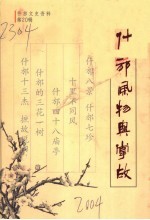 什邡文史资料
第20辑
什邡風物與掌故
什邡八景 什邡七珍
十里不同风
什邡四十八庙亭
什邡的三花一树
什邡十三杰
2004